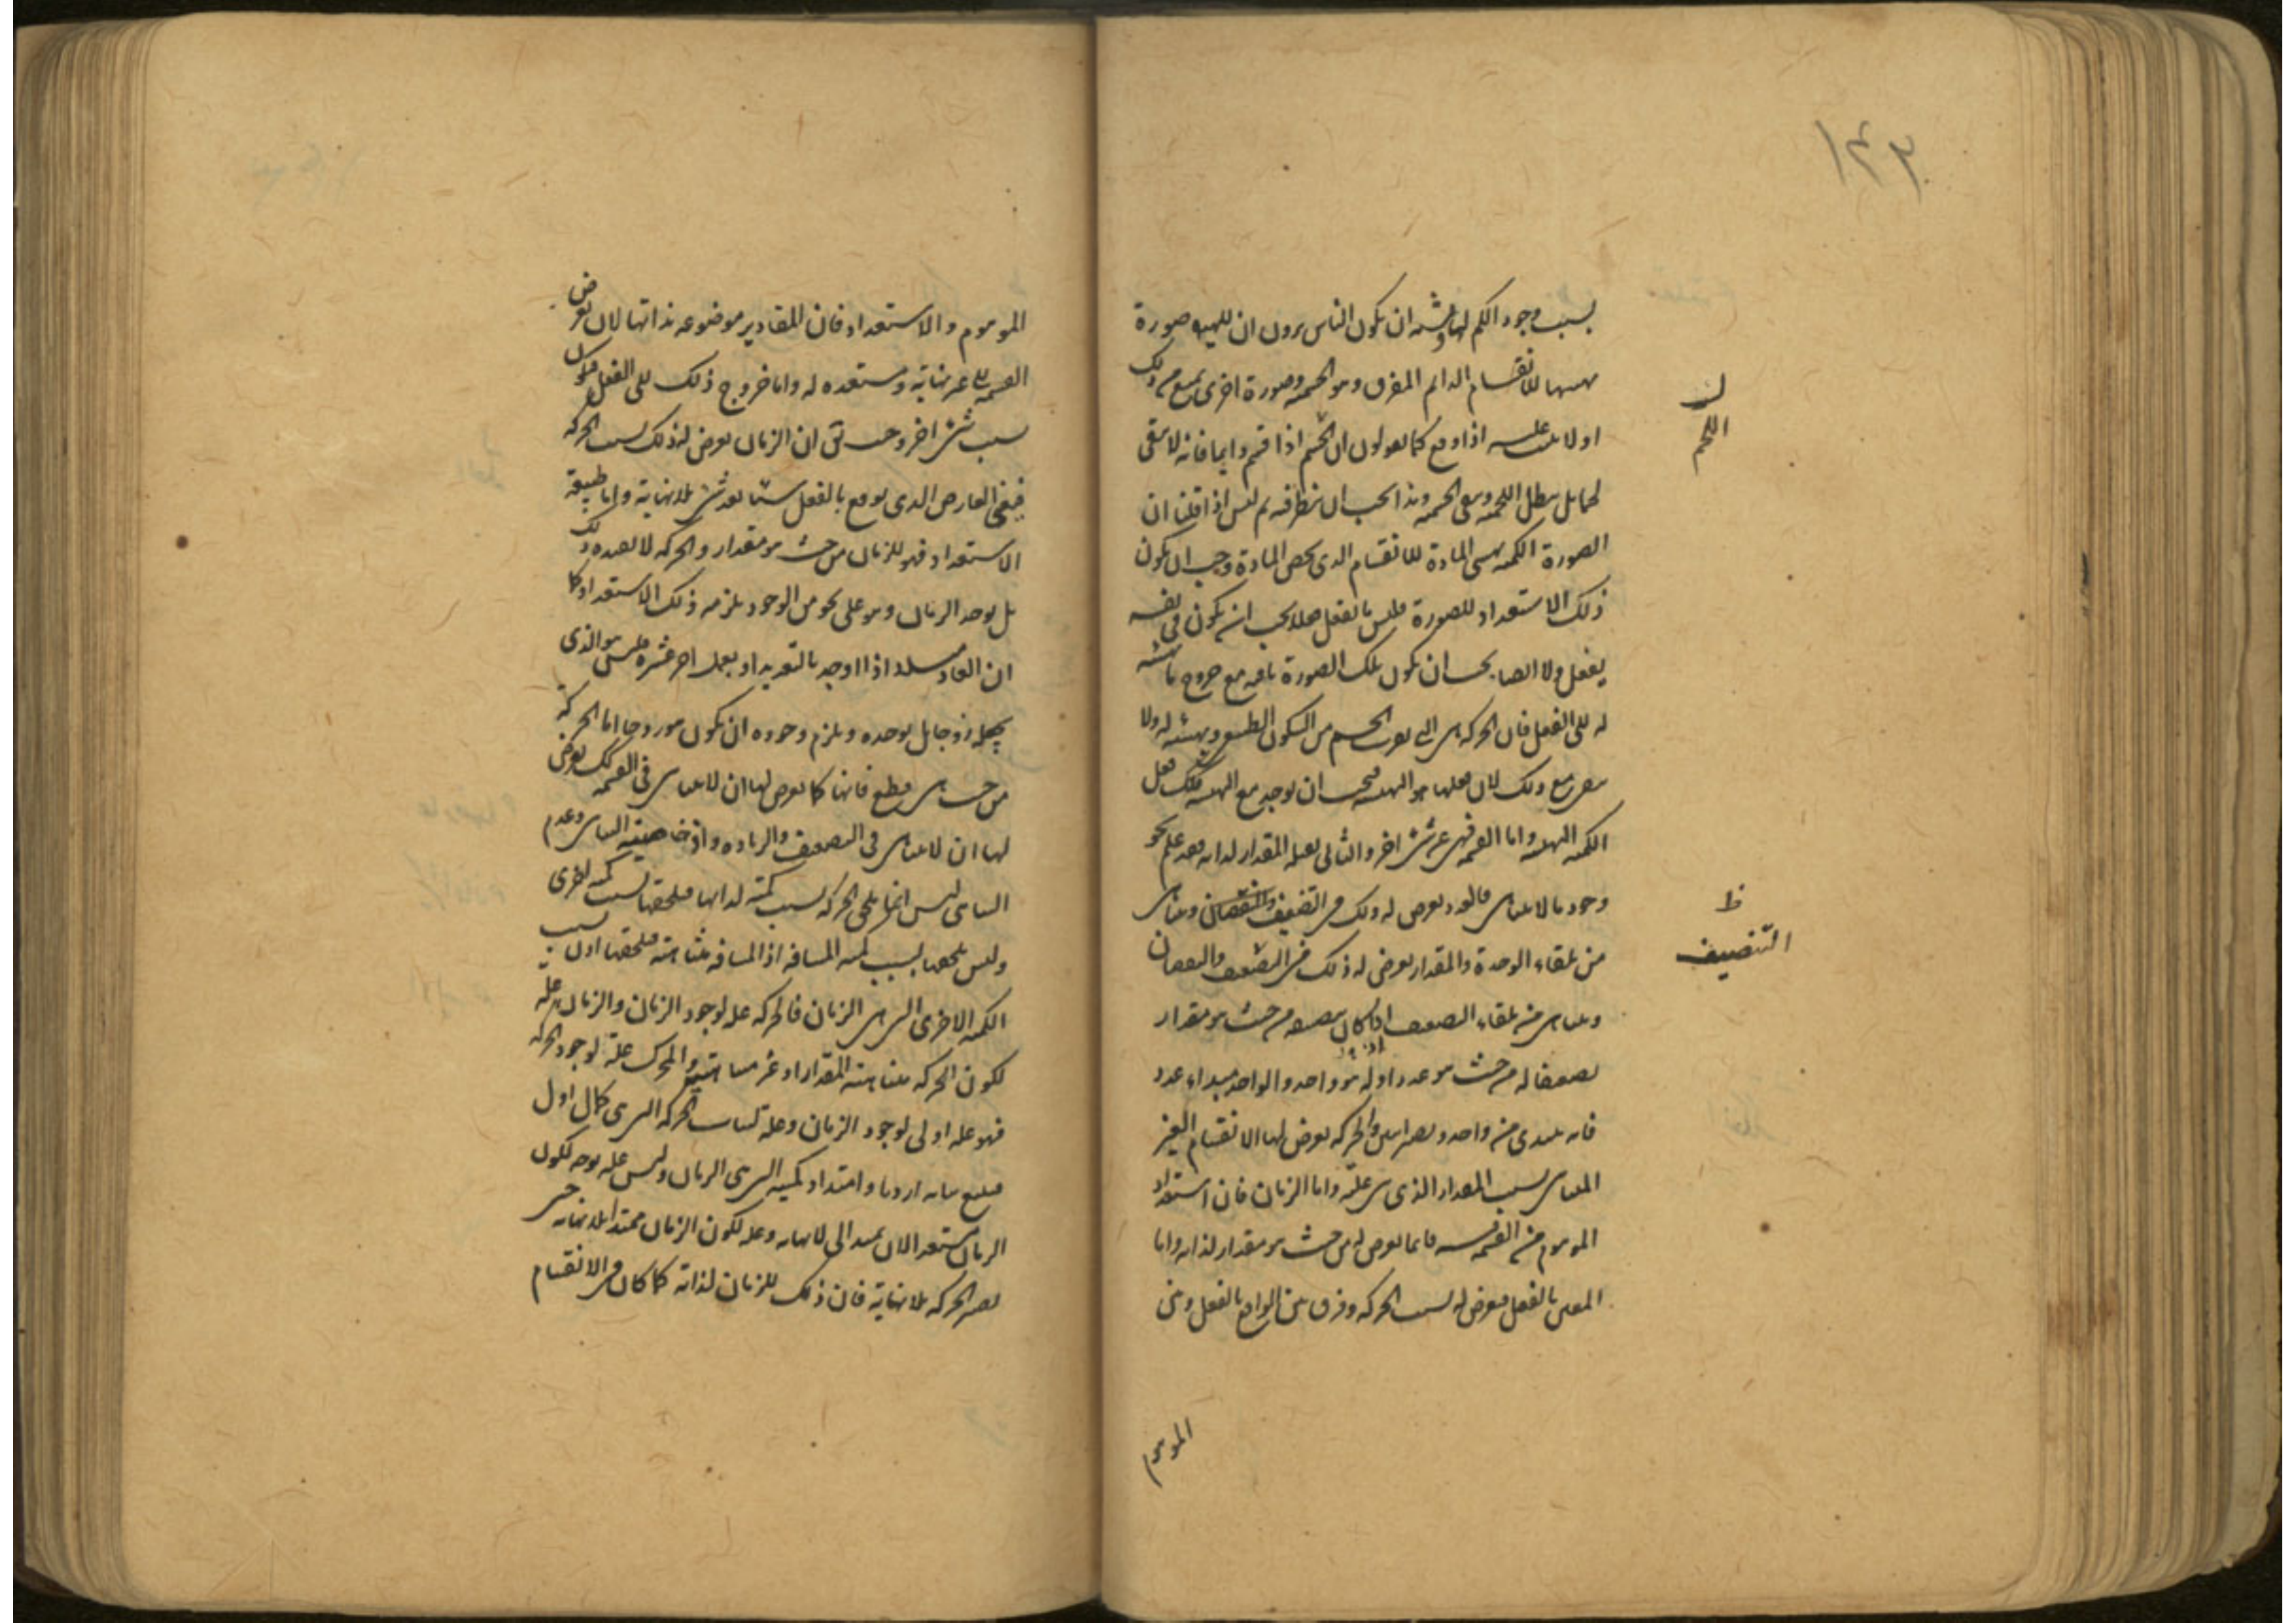 ١٤٣
بسبب وجود الكم لها ويشبه ان يكون الناس يرون ان للهيولى صورة
للانقسام الدايم المفرق وهو الجسميه وصورة اخرى تمنع من ذلك
ان اللحم
او لا عليه اذا وقع كما يقولون ان اللحم اذا قسم دايما فانه لا يبقى
لحما بل يبطل اللحميه وتبقى الجسميه وهذا يجب ان ينظر فيه ثم ليس اذا قلنا ان
الصورة الكميه تهيئ المادة للانقسام الذى يخص المادة وجب ان يكون
ذلك الاستعداد للصورة فليس ما يفعل فعلا يجب ان يكون فى نفسه
يفعل ولا ايضا يجب ان يكون تلك الصورة باقيه مع خروج ما تهيئه
له الى الفعل فان الحركه هى التى تقرب الجسم من السكون الطبيعى وتهيئه له ولا
مع ذلك لان فعلها هو التهيئه فيجب ان يوجد مع التهيئه فتلك فعل
الكميه التهيئه واما القسمه فهى عن شئ اخر والثانى يقبله المقدار لذاته فقد علم نحو
وجود ما لا يتناهى فالعدد يعرض له ذلك فى التضعيف ويتناهى
ظ التنصيف
من تلقاء الوحدة والمقدار يعرض له ذلك فى التضعيف والنقصان
ويتناهى من تلقاء التضعيف اذا كان من حيث هو مقدار
تضعيفا له من حيث هو عدد اوله هو واحد والواحد مبداء عدد
فانه يبتدى من واحد ويصير اثنين والحركه يعرض لها الانقسام الغير
المتناهى بسبب المقدار الذى هى عليه واما الزمان فان استعداد
الموهوم من القسمه فانما يعرض له من حيث هو مقدار لذاته واما
المعنى بالفعل فيعرض له بسبب الحركه وفرق بين الواقع بالفعل وبين
الموهوم
الموهوم والاستعداد فان المقادير موضوعه بذاتها لان تعرض
القسمه الى غير نهاية ومستعده له واما خروج ذلك الى الفعل فيكون
بسبب شئ اخر وحيث تق ان الزمان يعرض له ذلك بسبب الحركه
فيعنى العارض الذى يوقع بالفعل شيئا بعد شئ بلا نهاية واما طبيعة
الاستعداد فهو للزمان من حيث هو مقدار والحركه لا تفيده ذلك
بل يوجد الزمان وهو على نحو من الوجود يلزمه ذلك الاستعداد كما
ان العاد مثلا اذا اوجد بالتعديد او بعمل اخر عشرة فليس هو الذى
يجعله زوجا بل يوجده ويلزم وجوده ان يكون زوجا اما الحركة
من حيث هى قطع فانها كما يعرض لها ان لا يتناهى فى القسمه كك يعرض
لها ان لا يتناهى فى التضعيف والزياده واذ خاصية التناهى وعدم
التناهى ليس انما تلحق الحركه بسبب كمية لذاتها فيلحقها بسبب كميه اخرى
وليس يلحقها بسبب كميه المسافه اذ المسافه متناهيه فيلحقها اذن بسبب
الكميه الاخرى التى هى الزمان فالحركه عله لوجود الزمان والزمان علة
لكون الحركه متناهية المقدار او غير متناهيته والمحرك علة لوجود الحركه
فهو عله اولى لوجود الزمان وعلة لثبات الحركه التى هى كمال اول
فيتبع ثباته ازدياد امتداد كميته التى هى الزمان وليس عله بوجه لكون
الزمان مستعدا لان يمتد الى لا نهايه وعله لكون الزمان ممتدا بلا نهايه حين
يصير الحركه بلا نهاية فان ذلك للزمان لذاته كما كان فى الانقسام